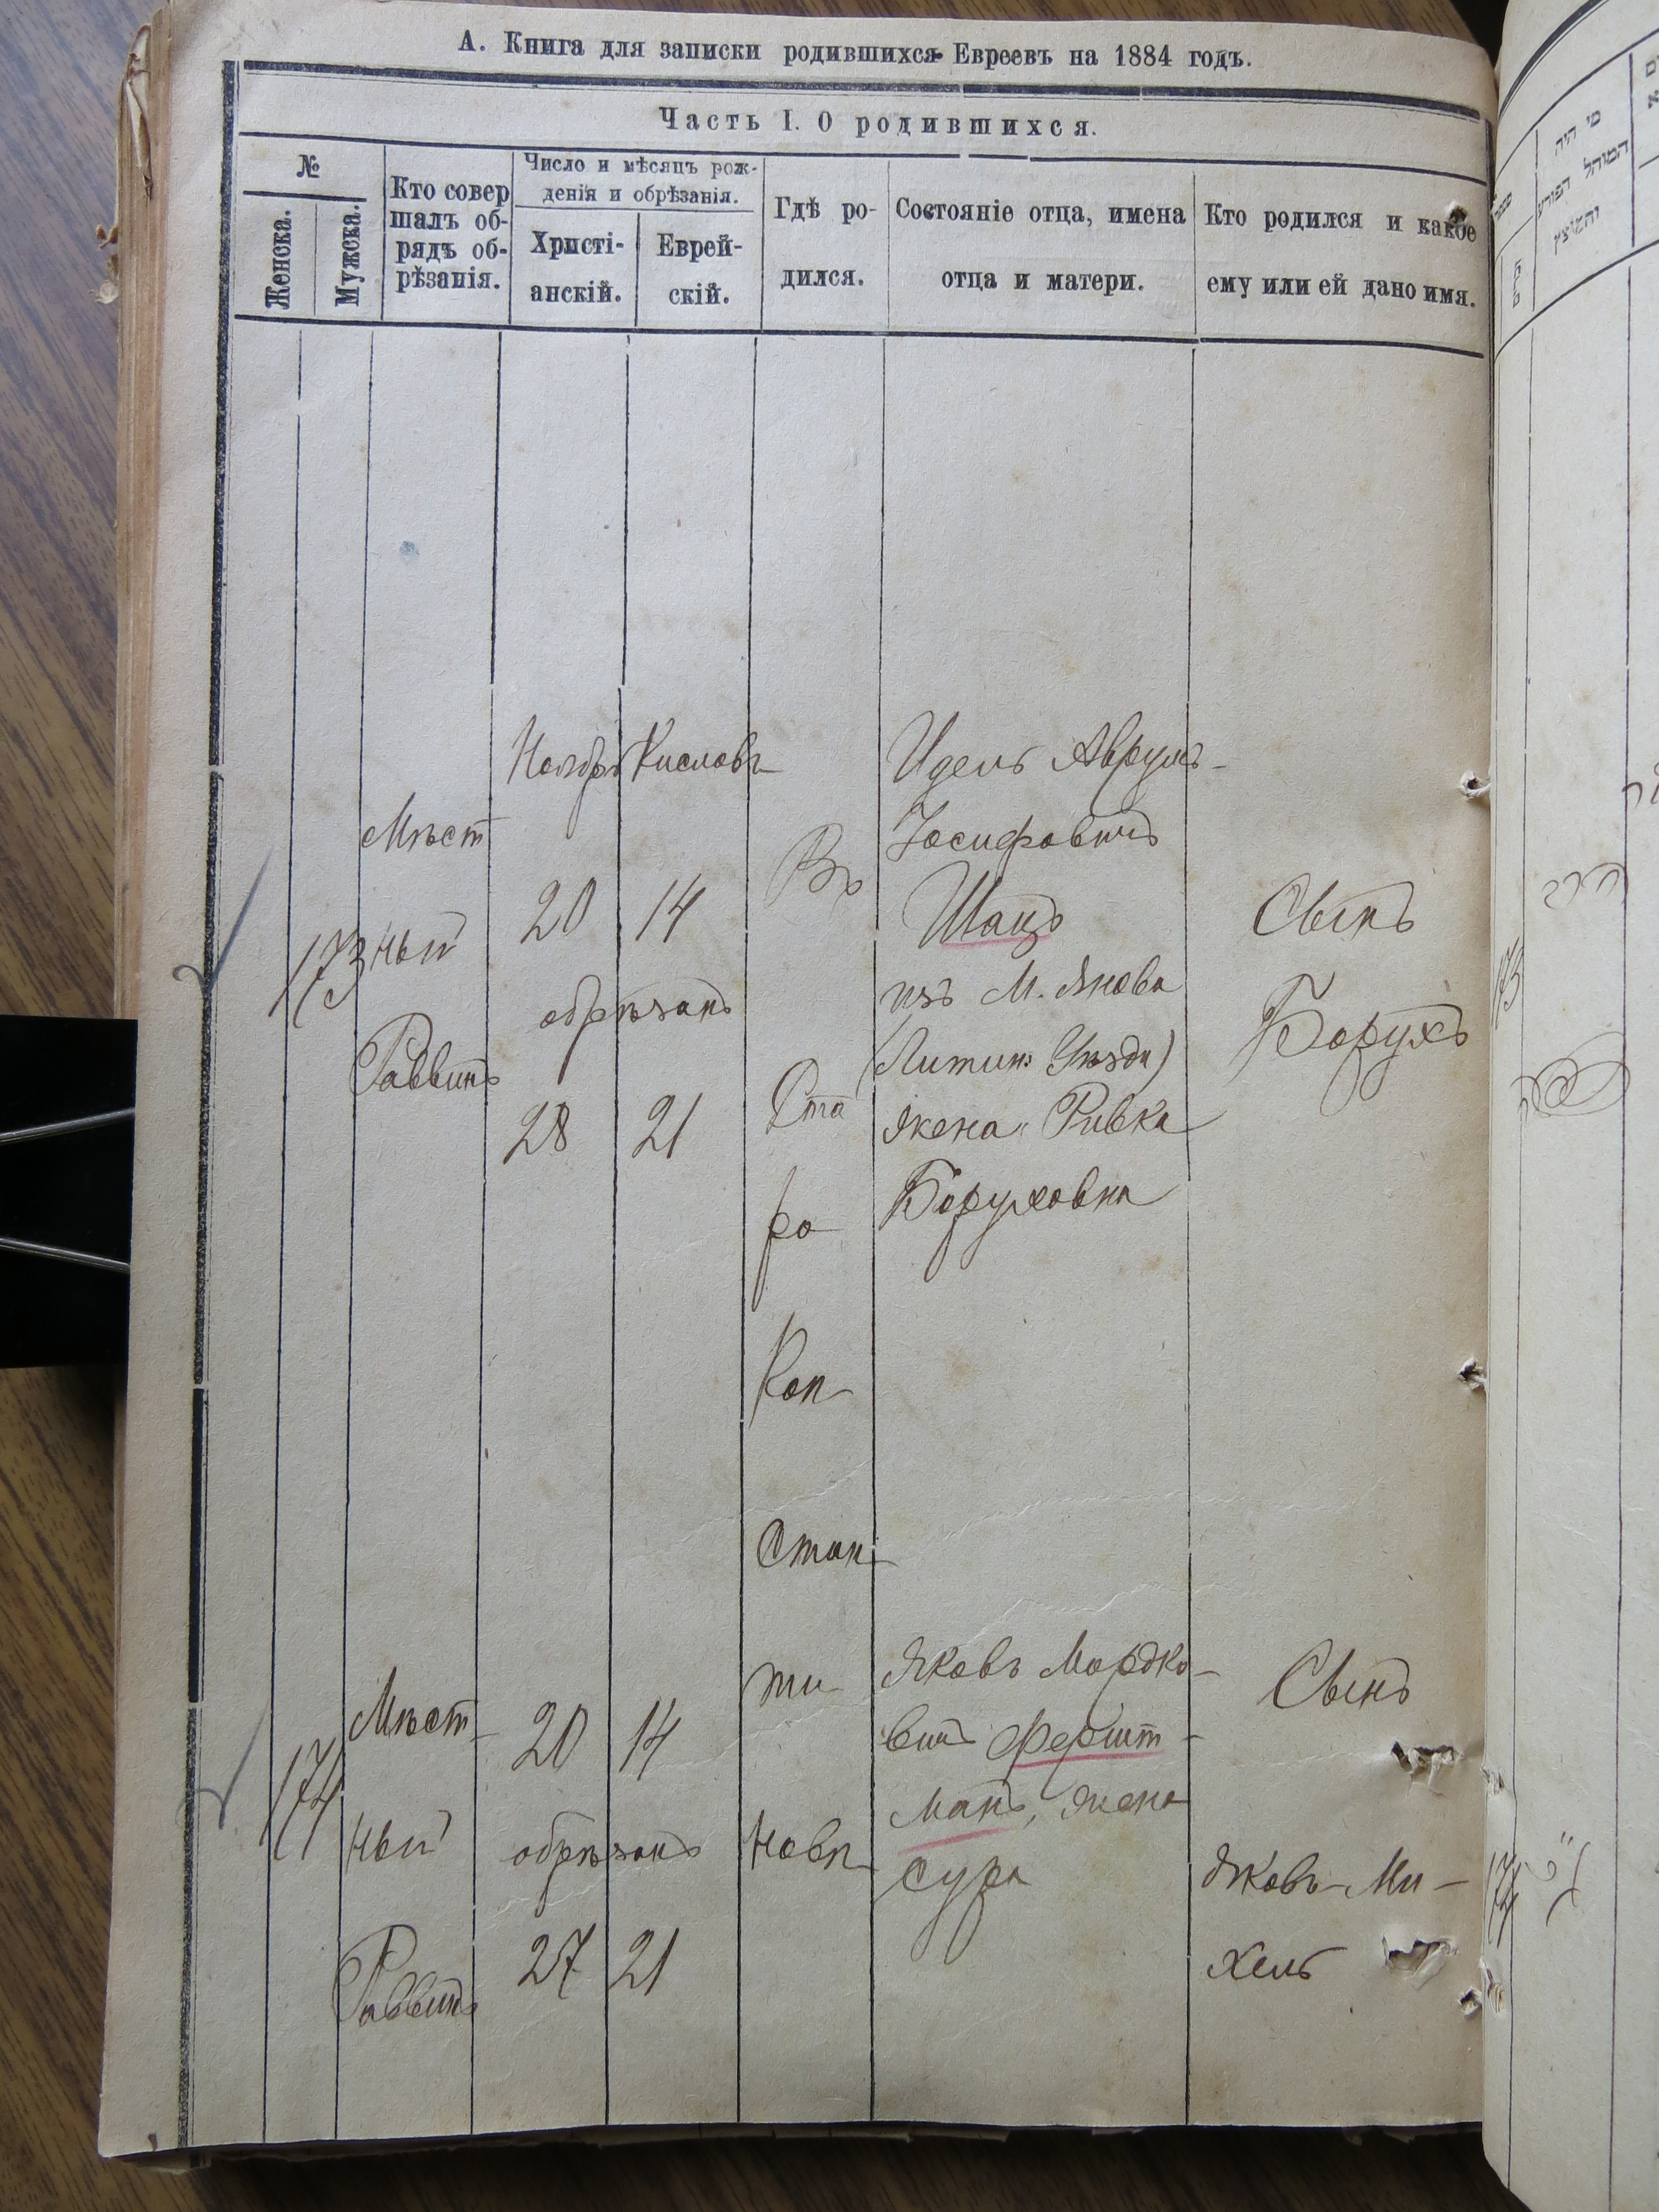 А. Книга для записки родившихся Евреевъ на 1884 годъ.
Часть I. О родившихся.
№
Женска.
Мужска.
Кто совер
шалъ об-
рядъ об-
рѣзанія.
Число и мѣсяцъ рож-
денія и обрѣзанія.
Христі-
анскій.
Еврей-
скій.
Гдѣ ро-
дился.
Состояніе отца, имена
отца и матери.
Кто родился и какое
ему или ей дано имя.
173
Мѣст
ный
Раввинъ
Ноябрь
20
обрѣзанъ
28
Кислевъ
14
21
Въ
Ста
ро
Кон-
стан-
ти-
новѣ
Идель Аврумъ-
Іосифовичъ
Шацъ
изъ М. Янова
(Литин: Уѣзда)
жена: Ривка
Боруховна
Сынъ
Борухъ
174
Мѣст-
ный
Раввинъ
20
14
обрѣзанъ
27
21
Яковъ Мордко-
вичъ Фершт-
манъ, жена
Сура
Сынъ
Яковъ-Ми-
хель
מי היה
המוהל
הפורע
והמוצץ
173
174